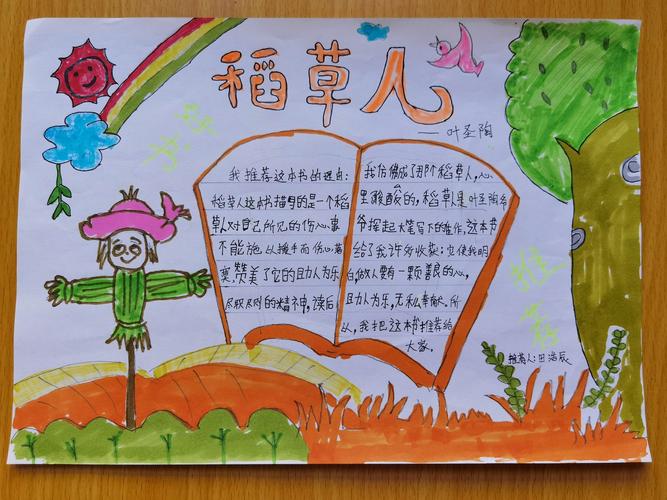 稻草人
——叶圣陶
我推荐这本书的理由:
稻草人这本书描写的是一个稻
草人对自己所见的伤心事
不能施以援手而伤心落
寞,赞美了它的助人为乐
尽职尽则的精神,读后
我仿佛成了那个稻草人,心
里酸的,稻草人是叶圣陶爷
爷挥起大笔写下的佳作,这本书
给了我许多收获:它使我明
白,做人要有一颗善良的心,
助人为乐,无私奉献,所
以,我把这本书推荐给
大家。
推荐
推荐人:田浩辰